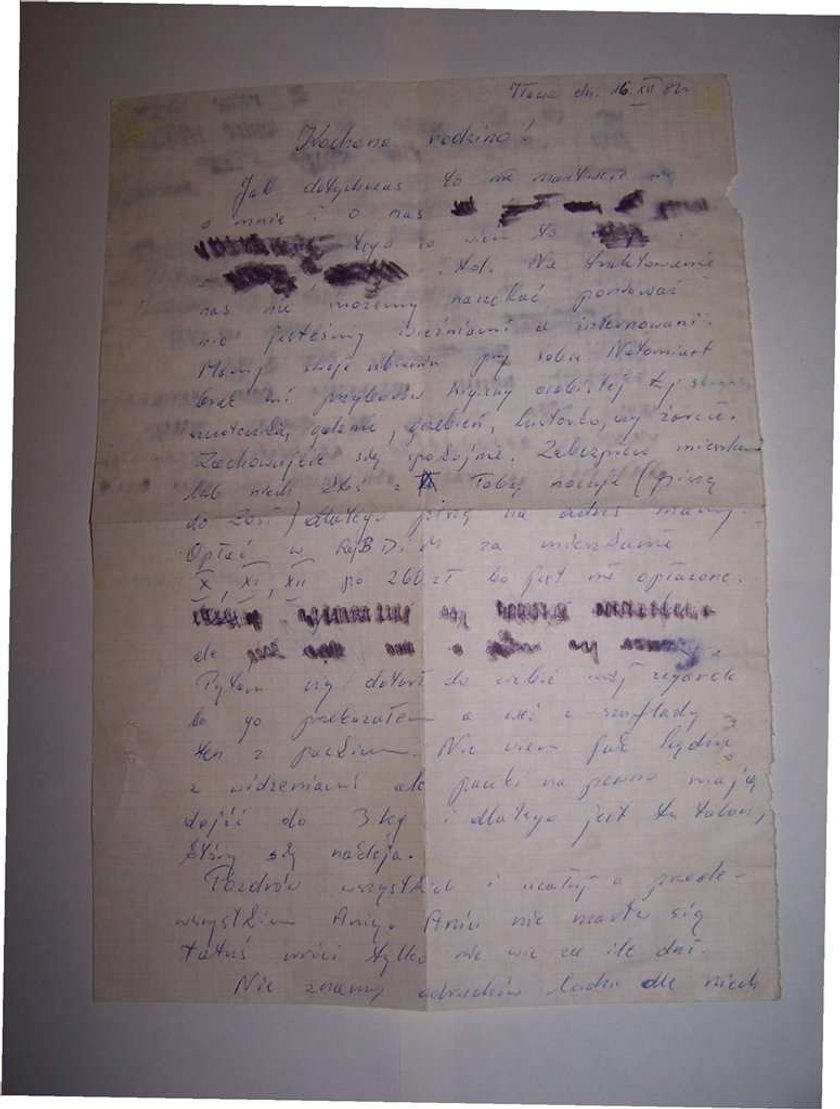 Iława dn. 16 XII 81r
Kochana rodzino!
Jak dotychczas to nie martwcie się
o mnie i o nas
tego co wiem to
itd. Na traktowanie
nas nie możemy narzekać ponieważ
nie jesteśmy więźniami a internowani.
Mamy swoje ubrania przy sobie Natomiast
brak mi przyborów higieny osobistej tzj
szczoteczka, golenie, grzebień, lusterko, czy żarcie.
Zachowujcie się spokojnie. Zabezpiecz mieszkanie
lub niech ktoś z Tobą nocuje (piszę
do Zosi) dlatego piszę na adres mamy.
Opłać w RejB D.i.M za mieszkanie
X, XI, XII po 260 zł bo jest nie opłacone.
do
Pytam czy dotarł do ciebie mój zegarek
bo go przekazałem a weź z szuflady
ten z paskiem. Nie wiem jak będzie
z widzeniami ale paczki na pewno mają
dojść do 3 kg i dlatego jest tu talon,
Pozdrów wszystkich i ucałuj a przede-
wszystkim Anię. Aniu nie martw się
tatuś wróci tylko nie wie za ile dni.
Nie znamy ludzi ale niech